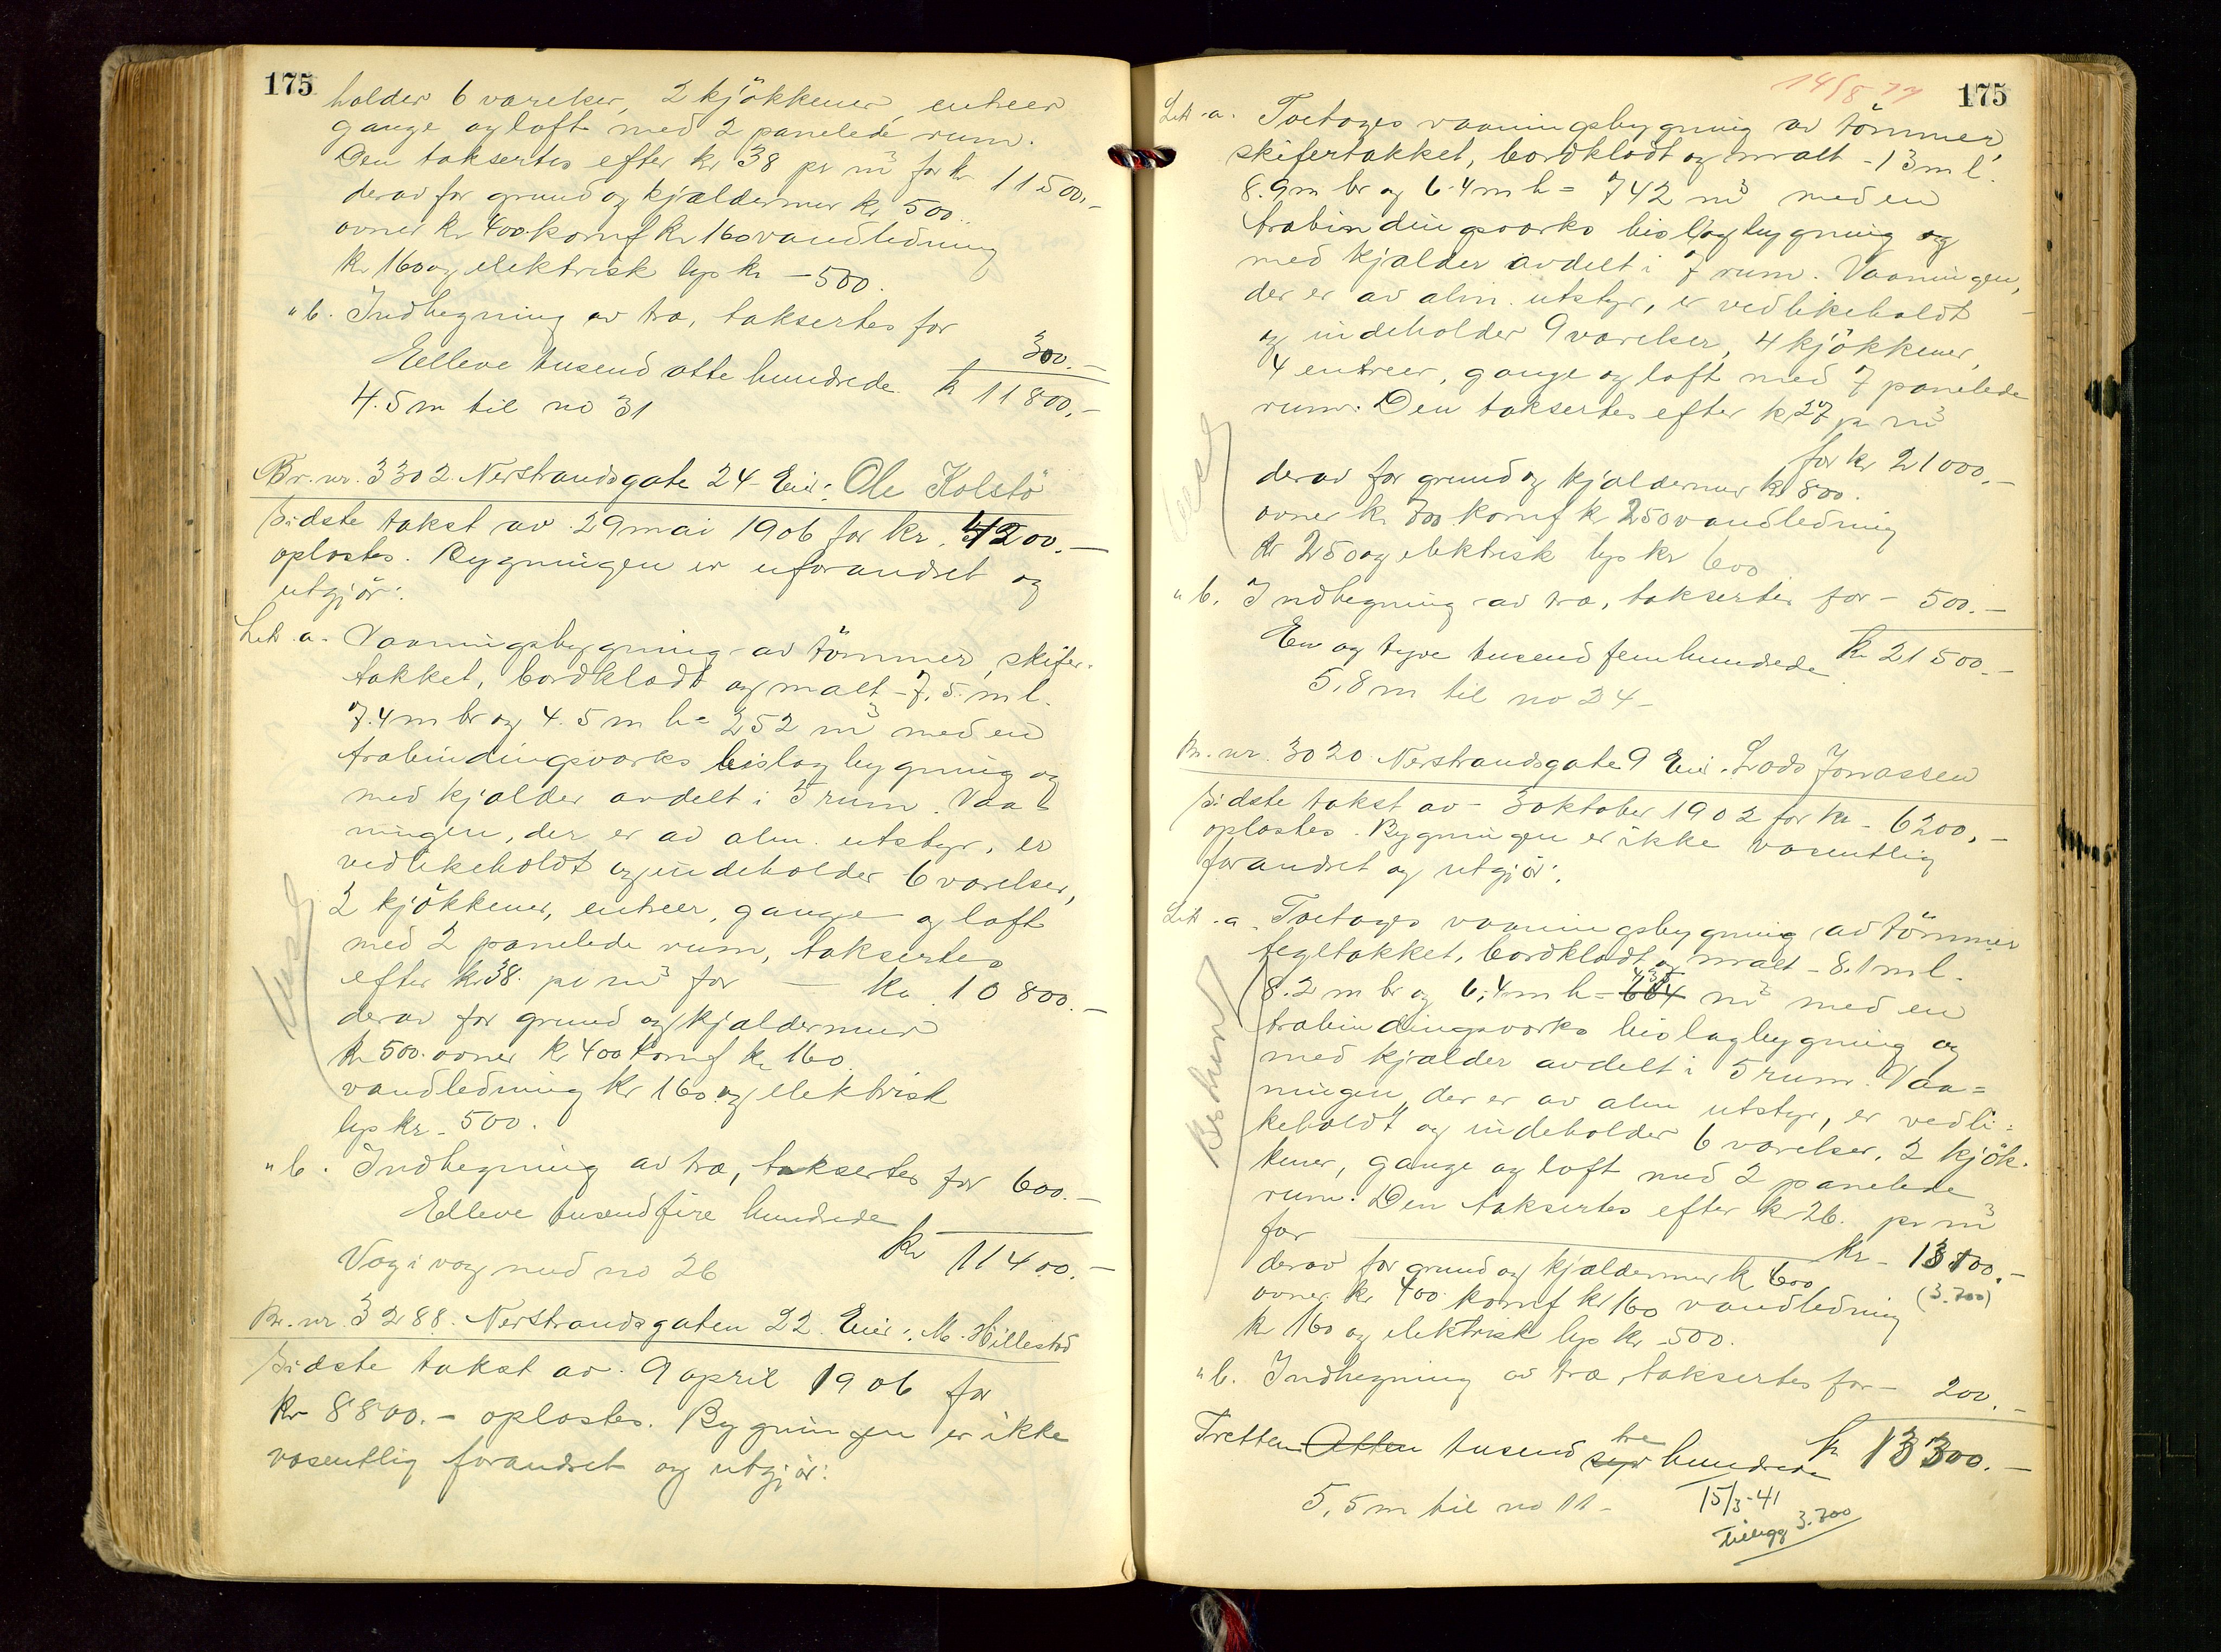 175
holder 6 værelser, 2 kjökkener, entreer
gange og loft med 2 panelede rum.
Den taksertes efter kr 38 pr m³ for kr 11500,-
derav for grund og kjældermur kr 500.
ovner kr 400 komf kr 160 vandledning
kr 160 og elektrisk lys kr - 500.
" b. Indhegning av træ, taksertes for
300.-
Elleve tusend otte hundrede kr 11800,-
4.5 m til no 31
Br. nr. 3302. Nerstrandsgate 24 Eier: Ole Kolstö
Sidste takst av 29 mai 1906 for kr. 4200.-
oplæstes. Bygningen er uforandret og
utgjör:
Litr. a. Vaaningsbygning av tömmer, skifer-
takket, bordklædt og malt - 7,5. m l.
7.4 m br og 4.5 m h = 252 m³ med en
træbindingsværks bislagbygning og
med kjælder avdelt i 5 rum. Vaa=
ningen, der er av alm. utstyr, er
vedlikeholdt og indeholder 6 værelser,
2 kjökkener, entreer, gange og loft
med 2 panelede rum, taksertes
efter kr 38. pr m³ for - kr. 10800.-
derav for grund og kjældermur
kr 500. ovner kr 400 komf kr 160.
vandledning kr 160 og elektrisk
lys kr - 500.
" b. Indhegning av træ, taksertes for 600.-
Elleve tusend fire hundrede
kr 11400.-
Væg i væg med no 26
Br. nr. 3288. Nerstrandsgaten 22. Eier: M. Hillestad
Sidste takst av 9 april 1906 for
kr 8800.- oplæstes. Bygningen er ikke
væsentlig forandret og utgjör:
175
Litr. a. Toetages vaaningsbygning av tömmer,
skifertakket, bordklædt og malt - 13 m l.
8.9 m br og 6.4 m h = 742 m³ med en
træbindingsværks bislagbygning og
med kjælder avdelt i 7 rum. Vaaningen,
der er av alm. utstyr, er vedlikeholdt
og indeholder 9 værelser, 4 kjökkener,
4 entreer, gange og loft med 7 panelede
rum. Den taksertes efter kr 27 pr m³
for kr 21000,-
derav for grund og kjældermur kr 800.
ovner kr 700 komf kr 250 vandledning
kr 250 og elektrisk lys kr 600
" b. Indhegning av træ, taksertes for - 500.-
En og tyve tusend fem hundrede kr 21500.-
5,8 m til no 24 -
Br. nr. 3020 Nerstrandsgate 9 Eier. Lads Jonassen
Sidste takst av - 3 oktober 1902 for kr - 6200,-
oplæstes. Bygningen er ikke væsentlig
forandret og utgjör:
Litr. a. Toetages vaaningsbygning av tömmer
tegltakket, bordklædt og malt - 8.1 m l.
8.2 m br og 6,4 m h = 664 m³ med en
træbindingsværks bislagbygning og
med kjælder avdelt i 5 rum. Vaa=
ningen, der er av alm utstyr, er vedli=
keholdt og indeholder 6 værelser, 2 kjök-
kener, gange og loft med 2 panelede
rum. Den taksertes efter kr 26. pr m³
for kr - 13100.-
derav for grund og kjældermur kr 600
(3.700)
ovner kr 400 komf kr 160 vandledning
kr 160 og elektrisk lys kr - 500.
" b. Indhegning av træ, taksertes for - 200.-
Tretten Atten tusend tre syv hundrede kr 13300.-
5,5 m til no 11 -
15/3-41
Tillegg 3.700